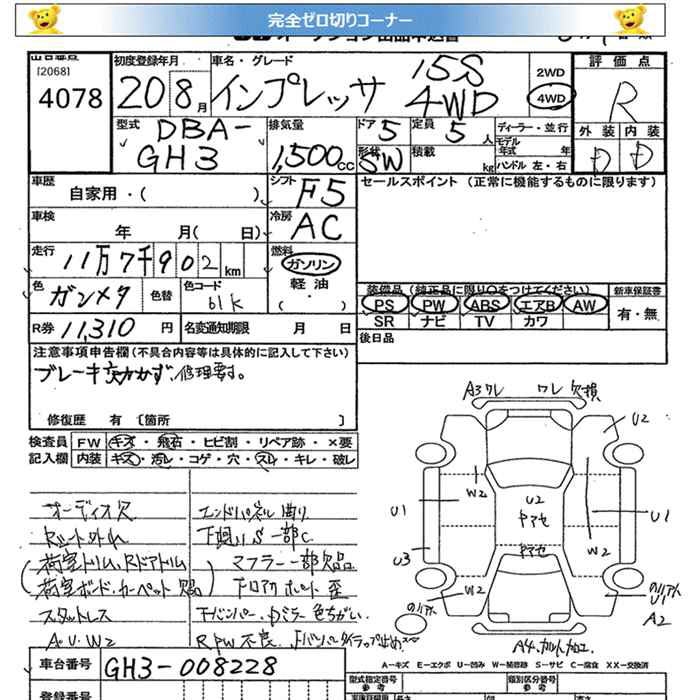 完全ゼロ切りコーナー
[2068]
4078
初度登録年月
20 8月
車名・グレード
インプレッサ 15S 4WD
2WD
4WD
評価点
R
外装 内装
D D
型式
DBA-
GH3
排気量
1,500cc
ドア 5
定員 5人
形状 SW
積載 kg
ディーラー・並行
モデル年式 年
ハンドル 左・右
車歴
自家用・( )
シフト F5
セールスポイント (正常に機能するものに限ります)
車検
年 月( 日)
冷房 AC
走行
11万7千902km
燃料
ガソリン
軽油
色
ガンメタ
色替
色コード
61k
装備品 (純正品に限り○をつけてください)
新車保証書
PS PW ABS エアB AW
有・無
SR ナビ TV カワ
R券 11,310円
名変通知期限 月 日
後日品
注意事項申告欄(不具合内容等は具体的に記入して下さい)
ブレーキ 効かず、修理要す。
修復歴 有 〔箇所 〕
検査員 FW キズ・飛石・ヒビ割・リペア跡・×要
記入欄 内装 キズ・汚レ・コゲ・穴・スレ・キレ・破レ
A3ワレ ワレ 欠損
U2
W2
U2
ヤアセ
U1
U1
U3
W2
ヤアセ
W2
U1
A2
オーディオ欠
エンドパネル曲り
下廻りS 一部C
荷室トリム、Rドアトリム
マフラー一部欠品
荷室ボード、カーペット 欠品
スタットレス
色ちがい
A U W2
R PW 不良
車台番号
GH3-008228
A-キズ E-エクボ U-凹み W-補修跡 S-サビ C-腐食 XX-交換済
型式指定番号
参考
類別区分番号
参考
登録番号